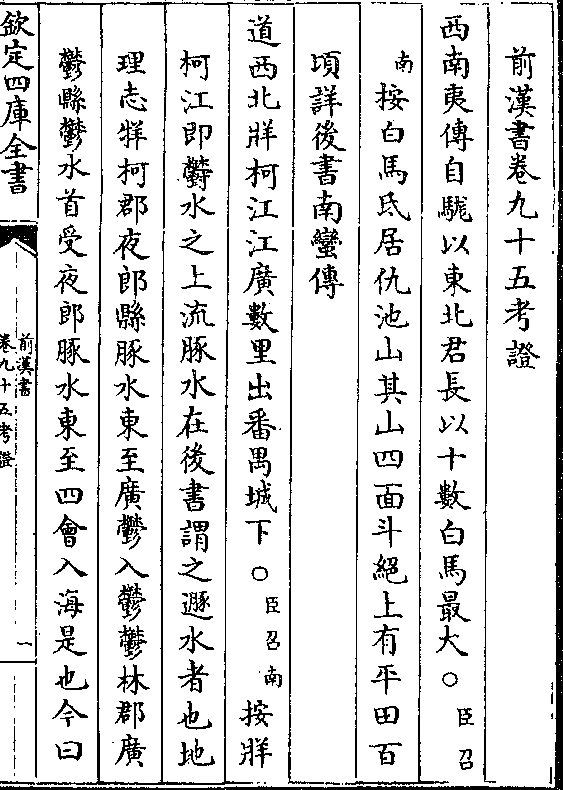 前漢書卷九十五考證
西南夷傳自駹以東北君長以十數白馬最大○臣召
南按白馬氐居仇池山其山四面斗絕上有平田百
頃詳後書南蠻傳
道西北牂柯江江廣數里出番禺城下○臣召南按牂
柯江即鬱水之上流豚水在後書謂之遯水者也地
理志牂柯郡夜郎縣豚水東至廣鬱入鬱鬱林郡廣
鬱縣鬱水首受夜郎豚水東至四會入海是也今曰
欽定四庫全書
前漢書
卷九十五考證
一